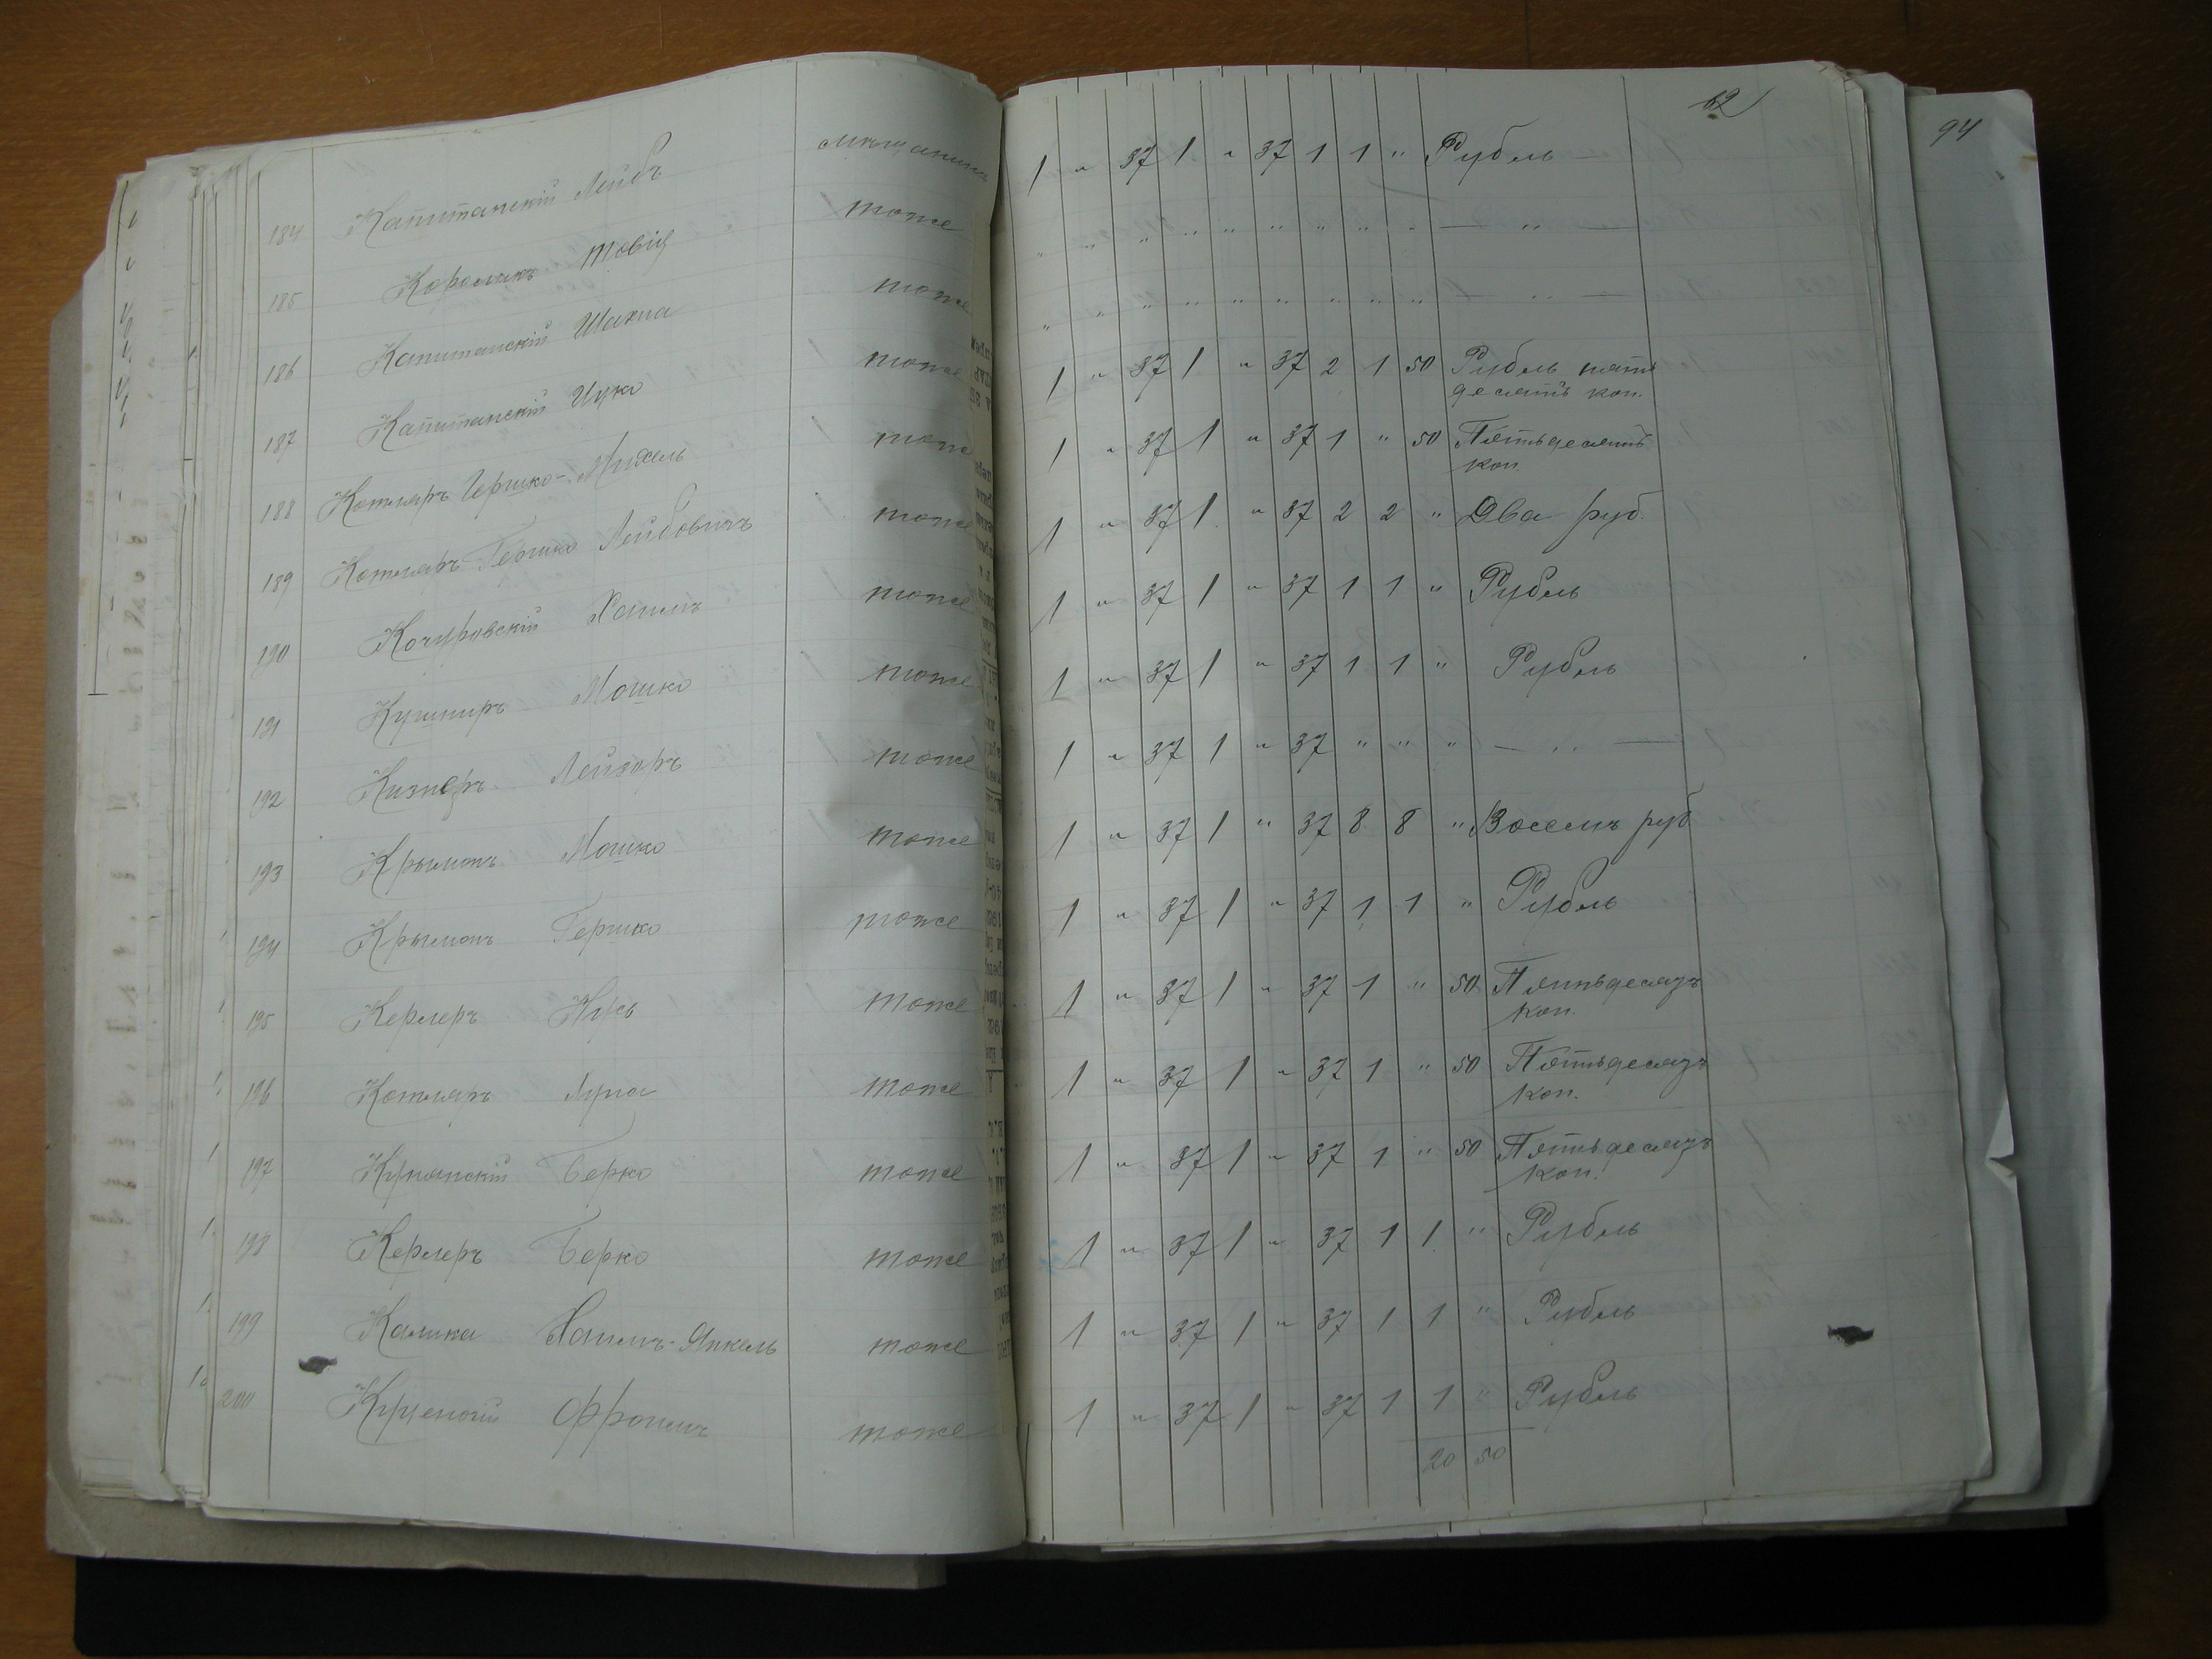 62
94
184 Капитанскій Лейбъ мѣщанинъ 1 " 37 1 " 37 1 1 " Рубль —
185 Короликъ Товія тоже " " " " " " " " " — " —
186 Капитанскій Шахна тоже " " " " " " " " " — " —
187 Капитанскій Ицко тоже 1 " 37 1 " 37 2 1 50 Рубль пять
десятъ коп.
188 Котляръ Гершко-Михель тоже 1 " 37 1 " 37 1 " 50 Пятьдесятъ
коп.
189 Котляръ Гершко Лейбовичъ тоже 1 " 37 1 " 37 2 2 " Два руб.
190 Кочуровскій Хаимъ тоже 1 " 37 1 " 37 1 1 " Рубль
191 Кушниръ Мошко тоже 1 " 37 1 " 37 1 1 " Рубль
192 Кизнеръ Лейзоръ тоже 1 " 37 1 " 37 " " " — " —
193 Крымонъ Мошко тоже 1 " 37 1 " 37 8 8 " Восемь руб
194 Крымонъ Гершко тоже 1 " 37 1 " 37 1 1 " Рубль
195 Керлеръ тоже 1 " 37 1 " 37 1 " 50 Пятьдесятъ
коп.
196 Котляръ тоже 1 " 37 1 " 37 1 " 50 Пятьдесятъ
коп.
197 Берко тоже 1 " 37 1 " 37 1 " 50 Пятьдесятъ
коп.
198 Керлеръ Берко тоже 1 " 37 1 " 37 1 1 " Рубль
199 Калика Хаимъ-Янкель тоже 1 " 37 1 " 37 1 1 " Рубль
200 Фроимъ тоже 1 " 37 1 " 37 1 1 " Рубль
20 50